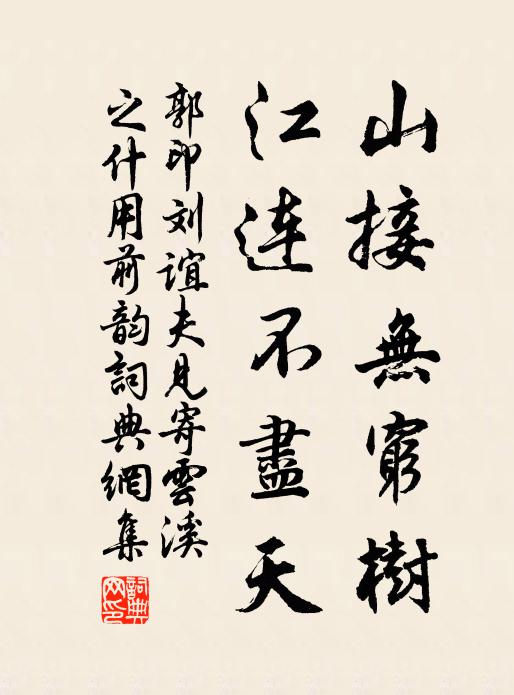 山接無窮樹
江连不盡天
郭印刘誼夫見寄雲溪
之什用前韵詞典網集